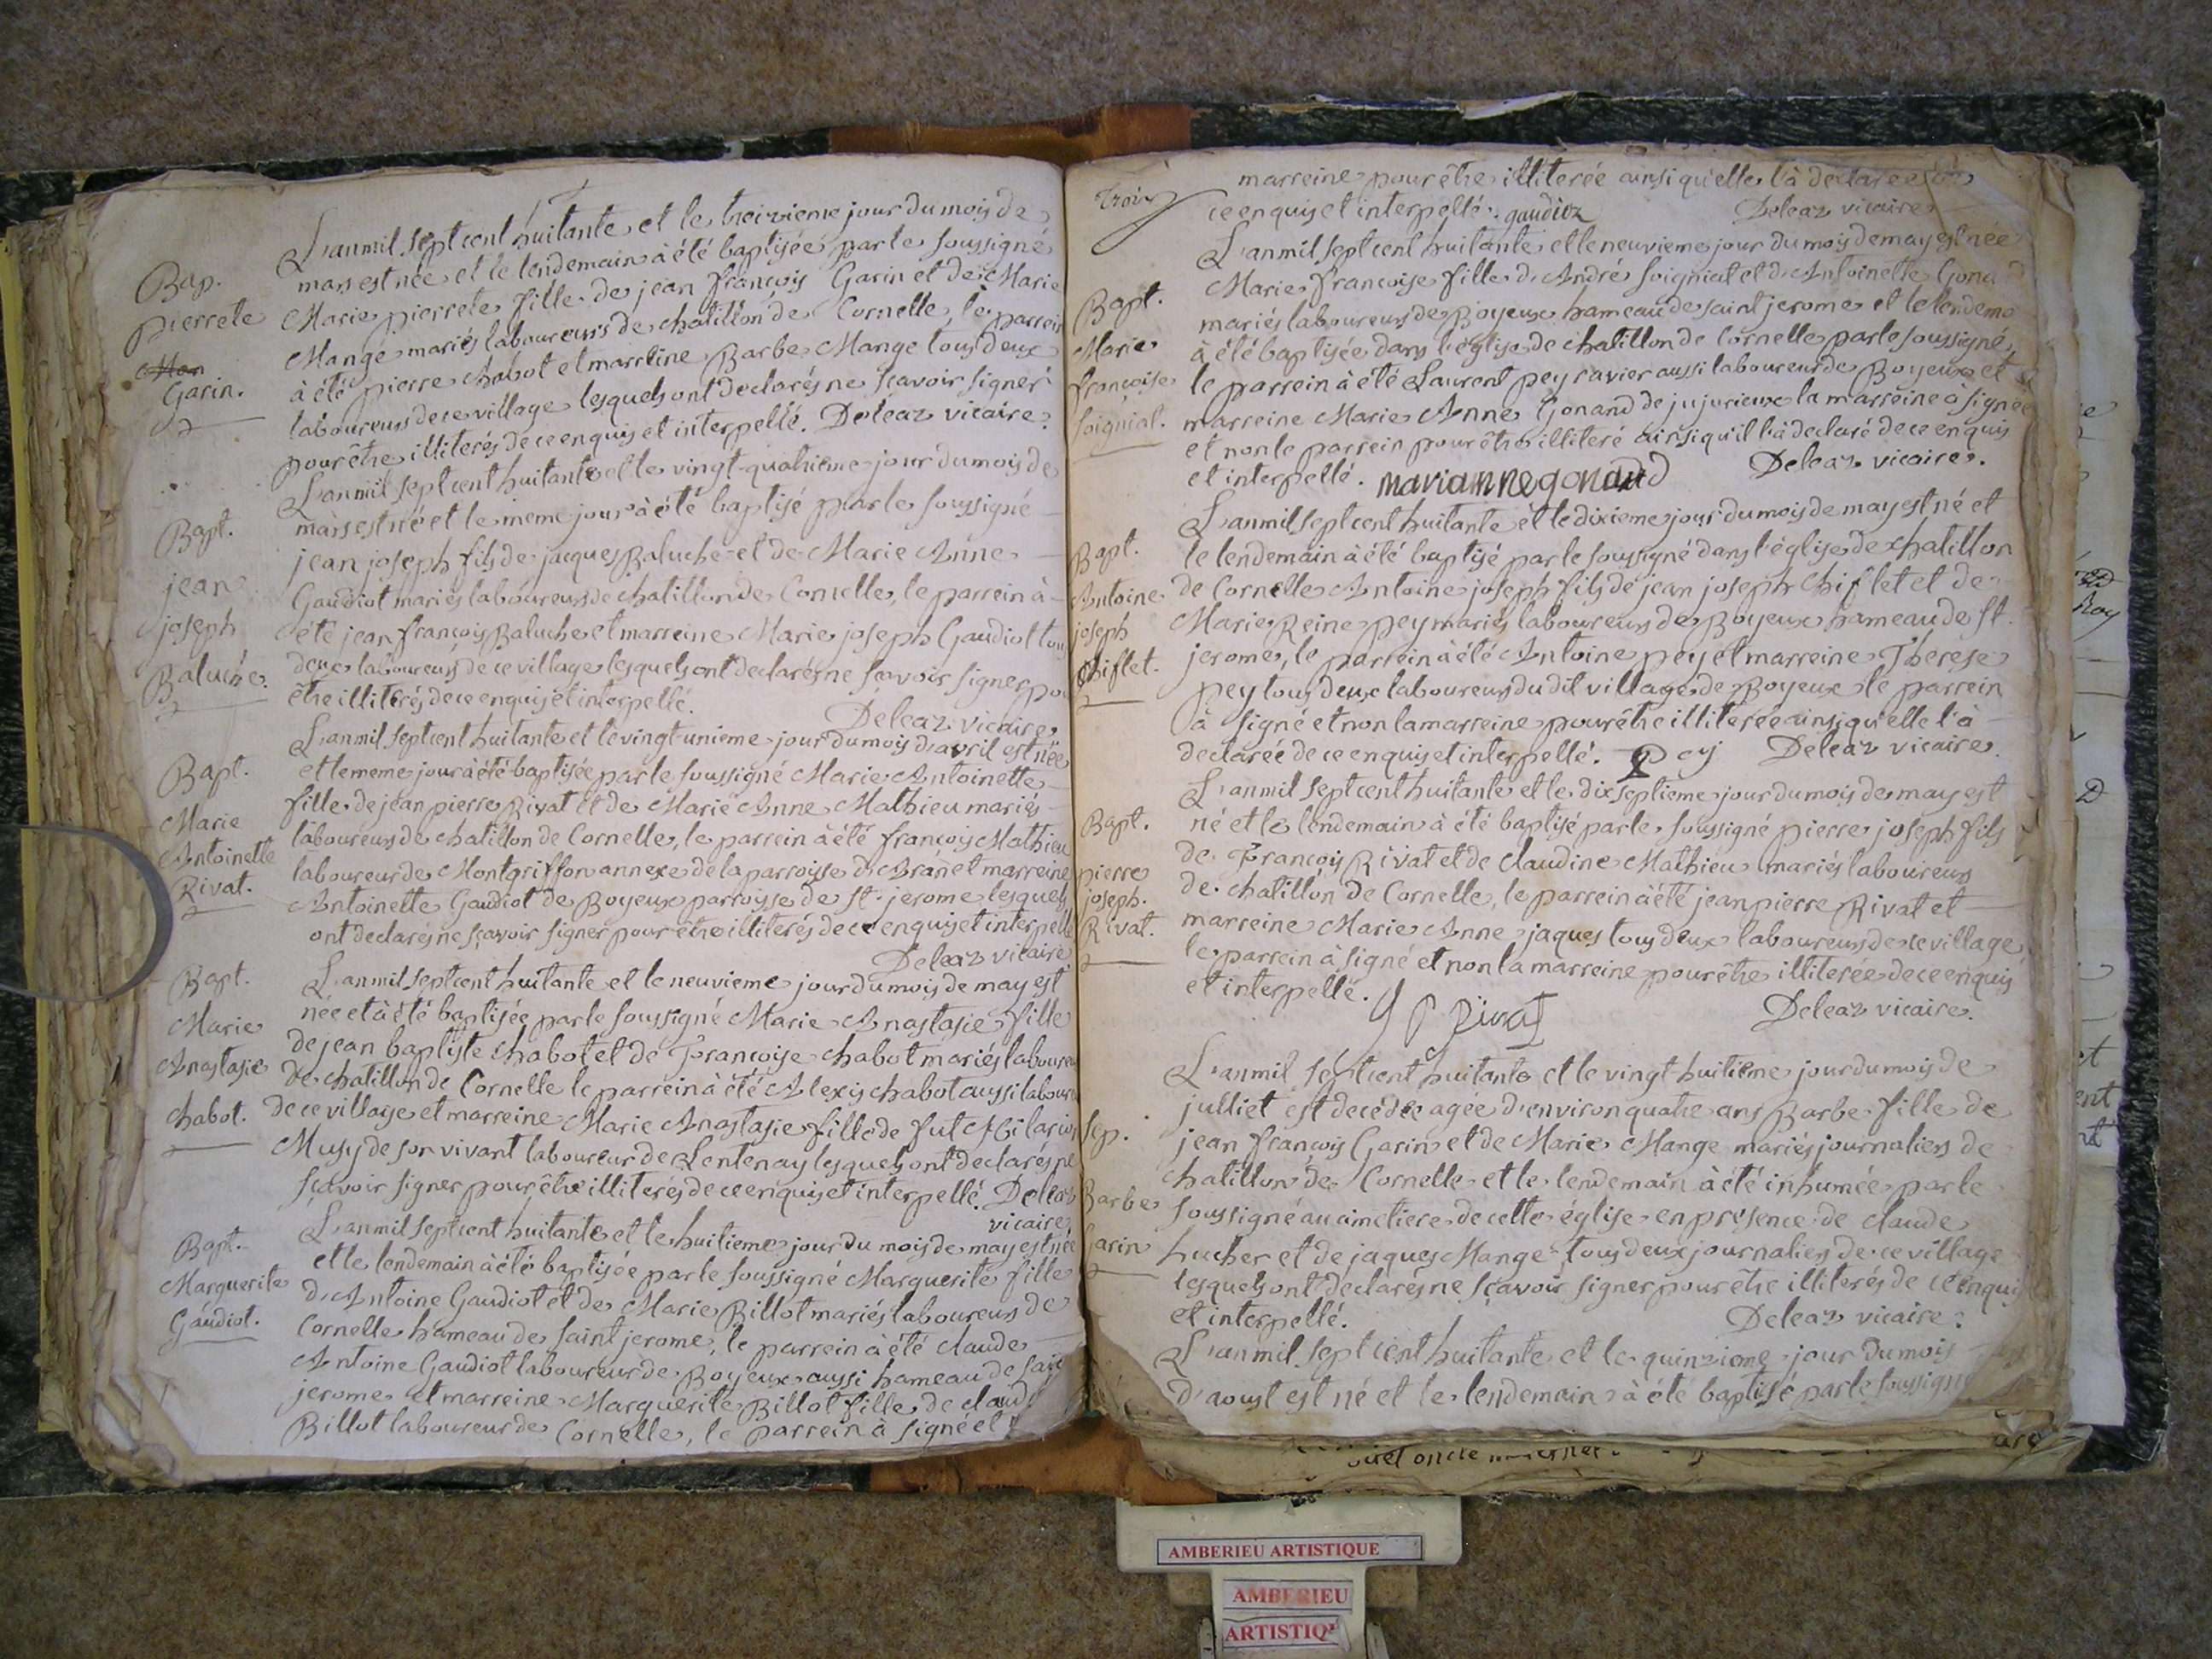 Bap.
pierrete
Garin.
L'an mil sept cent huitante et le treizieme jour du mois de
mars est née et le lendemain à été baptisée par le soussigné
Marie pierrete fille de jean françois Garin et de Marie
Mange mariés laboureurs de chatillon de Cornelle, le parrein
à été pierre chabot et marreine Barbe Mange tous deux
laboureurs de ce village lesquels ont declarés ne sçavoir signer
pour être illiterés de ce enquis et interpellé. Deleaz vicaire.
Bapt.
jean
joseph
Baluche.
L'an mil sept cent huitante et le vingt-quatrieme jour du mois de
mars est né et le meme jour à été baptisé par le soussigné
jean joseph fils de jacques Baluche et de Marie Anne
Gaudiot mariés laboureurs de chatillon de Cornelle, le parrein à
été jean françois Baluche et marreine Marie joseph Gaudiot tous
deux laboureurs de ce village lesquels ont declarés ne sçavoir signer pou
être illiterés de ce enquis et interpellé.
Deleaz vicaire.
Bapt.
Marie
Antoinette
Rivat.
L'an mil sept cent huitante et le vingt-unieme jour du mois d'avril est née
et le meme jour à été baptisée par le soussigné Marie Antoinette
fille de jean pierre Rivat et de Marie Anne Mathieu mariés
laboureurs de chatillon de Cornelle, le parrein à été françois Mathieu
laboureur de Montgriffon annexe de la parroisse d'Aran et marreine
Antoinette Gaudiot de Boyeux parroisse de st. jerome lesquels
ont declarés ne sçavoir signer pour être illiterés de ce enquis et interpellé
Deleaz vicaire
Bapt.
Marie
Anastasie
chabot.
L'an mil sept cent huitante et le neuvieme jour du mois de may est
née et à été baptisée par le soussigné Marie Anastasie fille
de jean baptiste chabot et de Françoise chabot mariés laboureu
de chatillon de Cornelle le parrein à été Alexis chabot aussi labour
de ce village et marreine Marie Anastasie fille de fut hilarion
Musy de son vivant laboureur de Lentenay lesquels ont declarés ne
sçavoir signer pour être illiterés de ce enquis et interpellé. Deleaz
vicaire
Bapt.
Marguerite
Gaudiot.
L'an mil sept cent huitante et le huitieme jour du mois de may est née
et le lendemain à été baptisée par le soussigné Marguerite fille
d'Antoine Gaudiot et de Marie Billot mariés laboureurs de
Cornelle hameau de saint jerome, le parrein à été claude
Antoine Gaudiot laboureur de Boyeux aussi hameau de saint
jerome et marreine Marguerite Billot fille de claude
Billot laboureur de Cornelle, le parrein à signé et
Trois
marreine pour être illiterée ainsi qu'elle l'à declarée de
ce enquis et interpellé. gaudioz
Deleaz vicaire
Bapt.
Marie
françoise
soignial.
L'an mil sept cent huitante et le neuvieme jour du mois de may est née
Marie françoise fille d'André soigniat et d'Antoinette Gona
mariés laboureurs de Boyeux hameau de saint jerome et le lendema
à été baptisée dans l'église de chatillon de Cornelle par le soussigné,
le parrein à été Laurent peyravier aussi laboureur de Boyeux et
marreine Marie Anne Gonand de jujurieux la marreine à signée
et non le parrein pour être illiteré ainsi qu'il l'à declaré de ce enquis
et interpellé. marianne gonand
Deleaz vicaire.
Bapt.
Antoine
joseph
Chiflet.
L'an mil sept cent huitante et le dixieme jour du mois de may est né et
le lendemain à été baptisé par le soussigné dans l'église de chatillon
de Cornelle Antoine joseph fils de jean joseph Chiflet et de
Marie Reine pey mariés laboureurs de Boyeux hameau de st.
jerome, le parrein à été Antoine pey et marreine Therese
pey tous deux laboureurs du dit village de Boyeux le parrein
à signé et non la marreine pour être illiterée ainsi qu'elle l'à
declarée de ce enquis et interpellé. Pey Deleaz vicaire.
Bapt.
pierre
joseph.
Rivat.
L'an mil sept cent huitante et le dix septieme jour du mois de may est
né et le lendemain à été baptisé par le soussigné pierre joseph fils
de François Rivat et de claudine Mathieu mariés laboureurs
de chatillon de Cornelle, le parrein à été jean pierre Rivat et
marreine Marie Anne jaques tous deux laboureurs de ce village
le parrein à signé et non la marreine pour être illiterée de ce enquis
et interpellé.
Deleaz vicaire.
Sep.
Barbe
Garin
L'an mil sept cent huitante et le vingt huitieme jour du mois de
julliet est decedée agée d'environ quatre ans Barbe fille de
jean françois Garin et de Marie Mange mariés journaliers de
chatillon de Cornelle et le lendemain à été inhumée par le
soussigné au cimetiere de cette église en presence de claude
hucher et de jaques Mange tous deux journaliers de ce village
lesquels ont declarés ne sçavoir signer pour être illiterés de ce enquis
et interpellé.
Deleaz vicaire.
L'an mil sept cent huitante et le quinzieme jour du mois
d'aoust est né et le lendemain à été baptisé par le soussigné
AMBERIEU ARTISTIQUE
AMBERIEU
ARTISTIQ